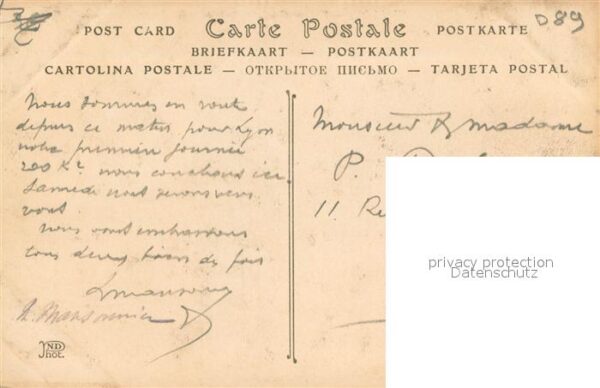 D89
POST CARD Carte Postale POSTKARTE
BRIEFKAART — POSTKAART
CARTOLINA POSTALE — ОТКРЫТОЕ ПИСЬМО — TARJETA POSTAL
Nous sommes en rout
depuis ce matin pour Lyon
notre premiere journée
200 Kr nous couchons ici
Samedi nous serons vers
vous.
nous vous embrassons
tous deux bien des fois
Monsieur & madame
P.
11. Ru
privacy protection
Datenschutz
ND
Phot.